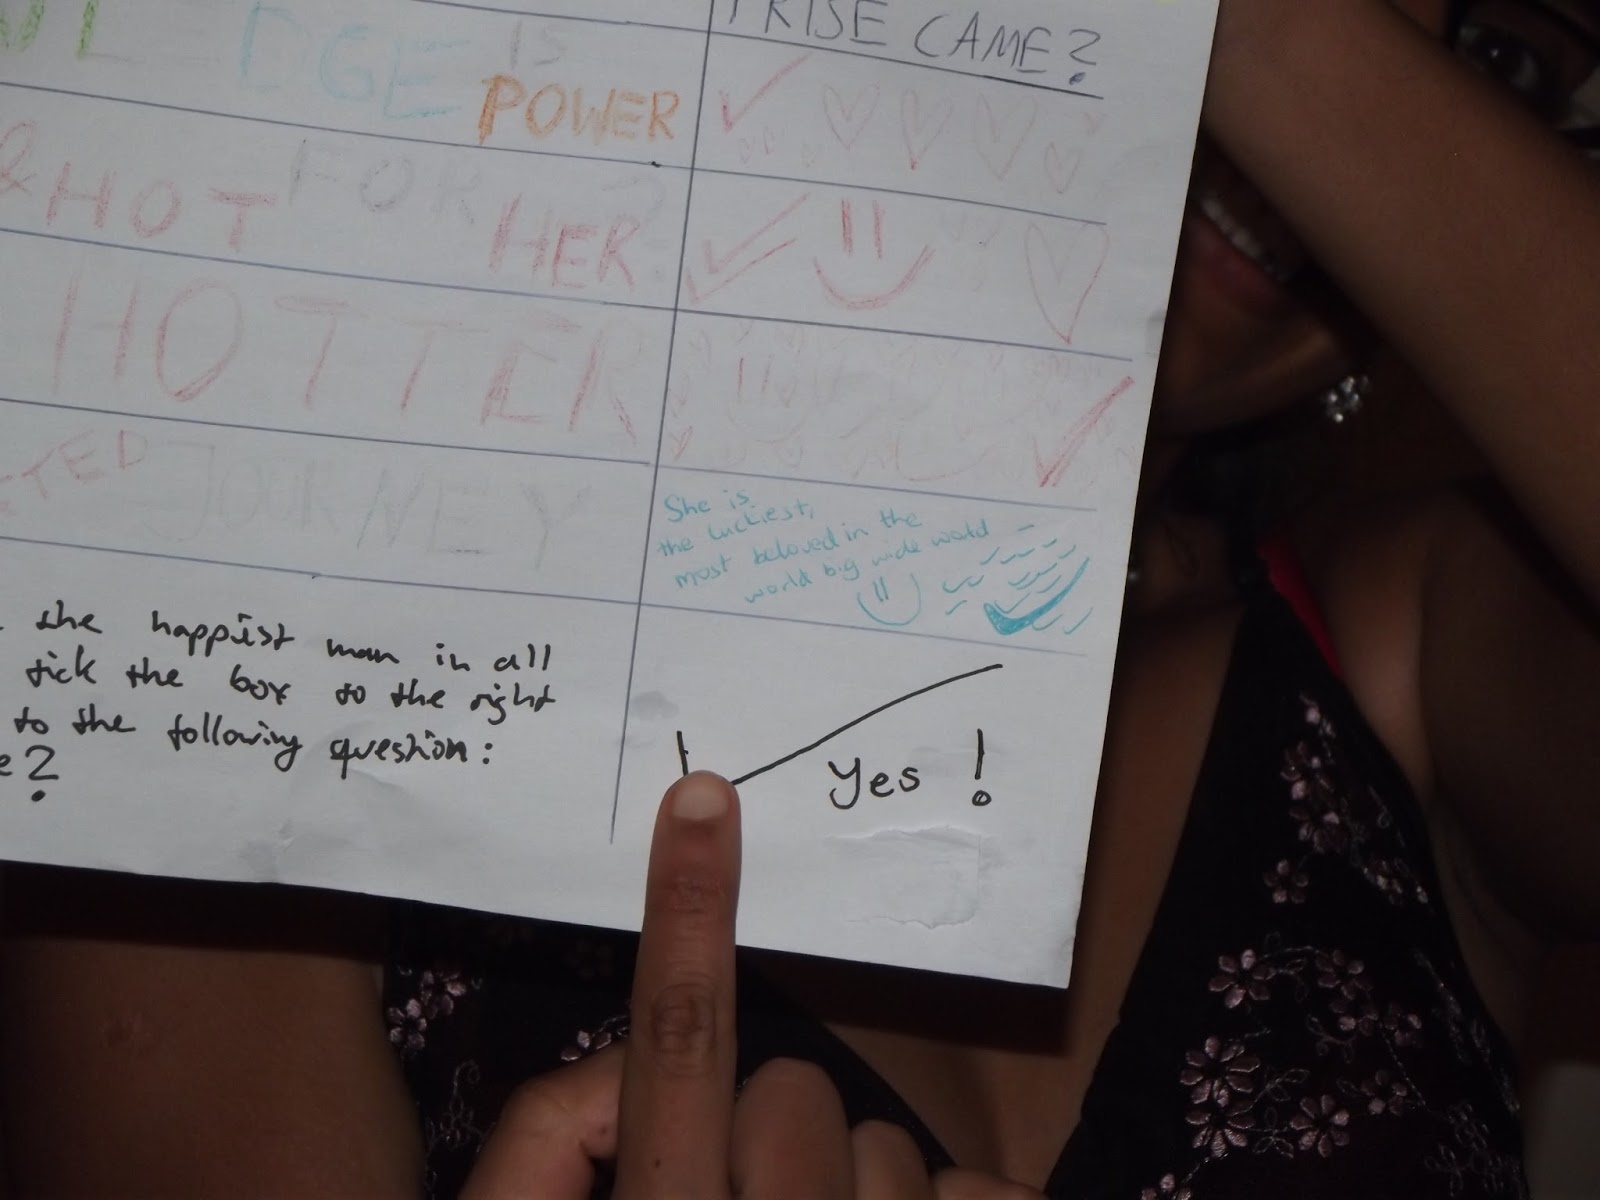 PRISE CAME?
LEDGE IS
POWER
& HOT FOR HER?
HOTTER
JOURNEY
She is
the luckiest,
most beloved in the
world big wide world
the happiest man in all
tick the box to the right
to the following question:
e?
Yes!